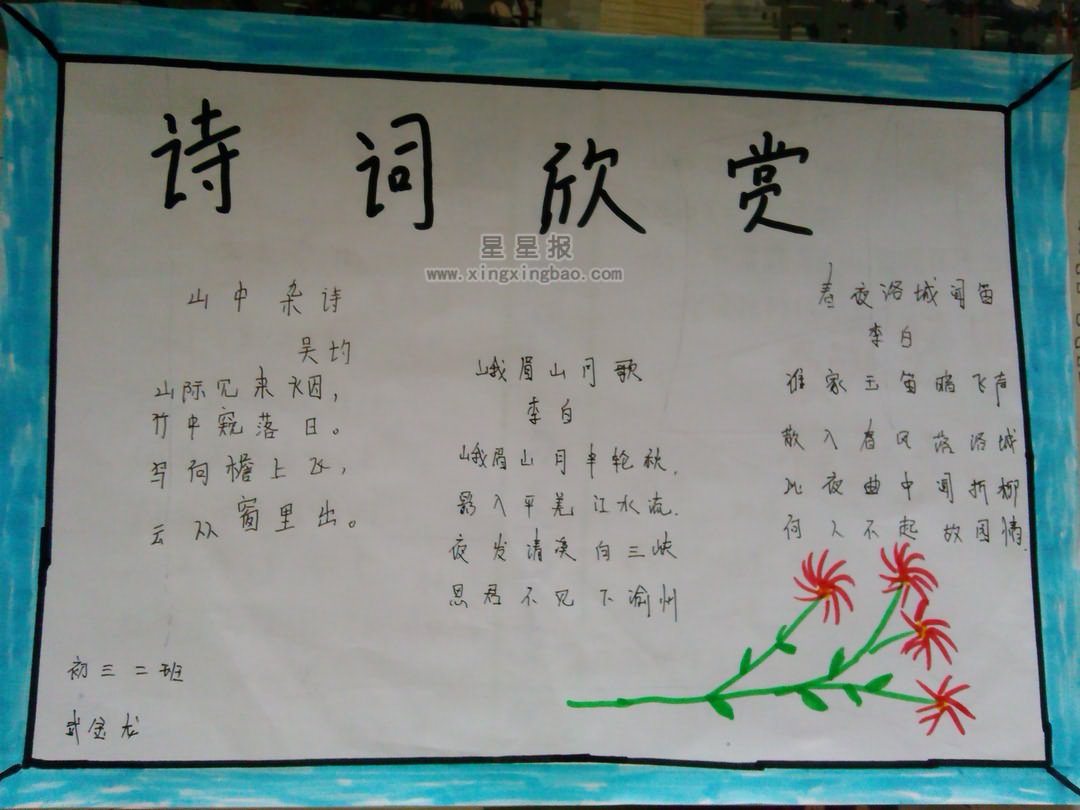 诗词欣赏
星星报
www.xingxingbao.com
山中杂诗
吴均
山际见来烟，
竹中窥落日。
鸟向檐上飞，
云从窗里出。
峨眉山月歌
李白
峨眉山月半轮秋.
影入平羌江水流.
夜发清溪向三峡
思君不见下渝州
春夜洛城闻笛
李白
谁家玉笛暗飞声
散入春风落洛城
此夜曲中闻折柳
何人不起故园情.
初三二班
武金龙